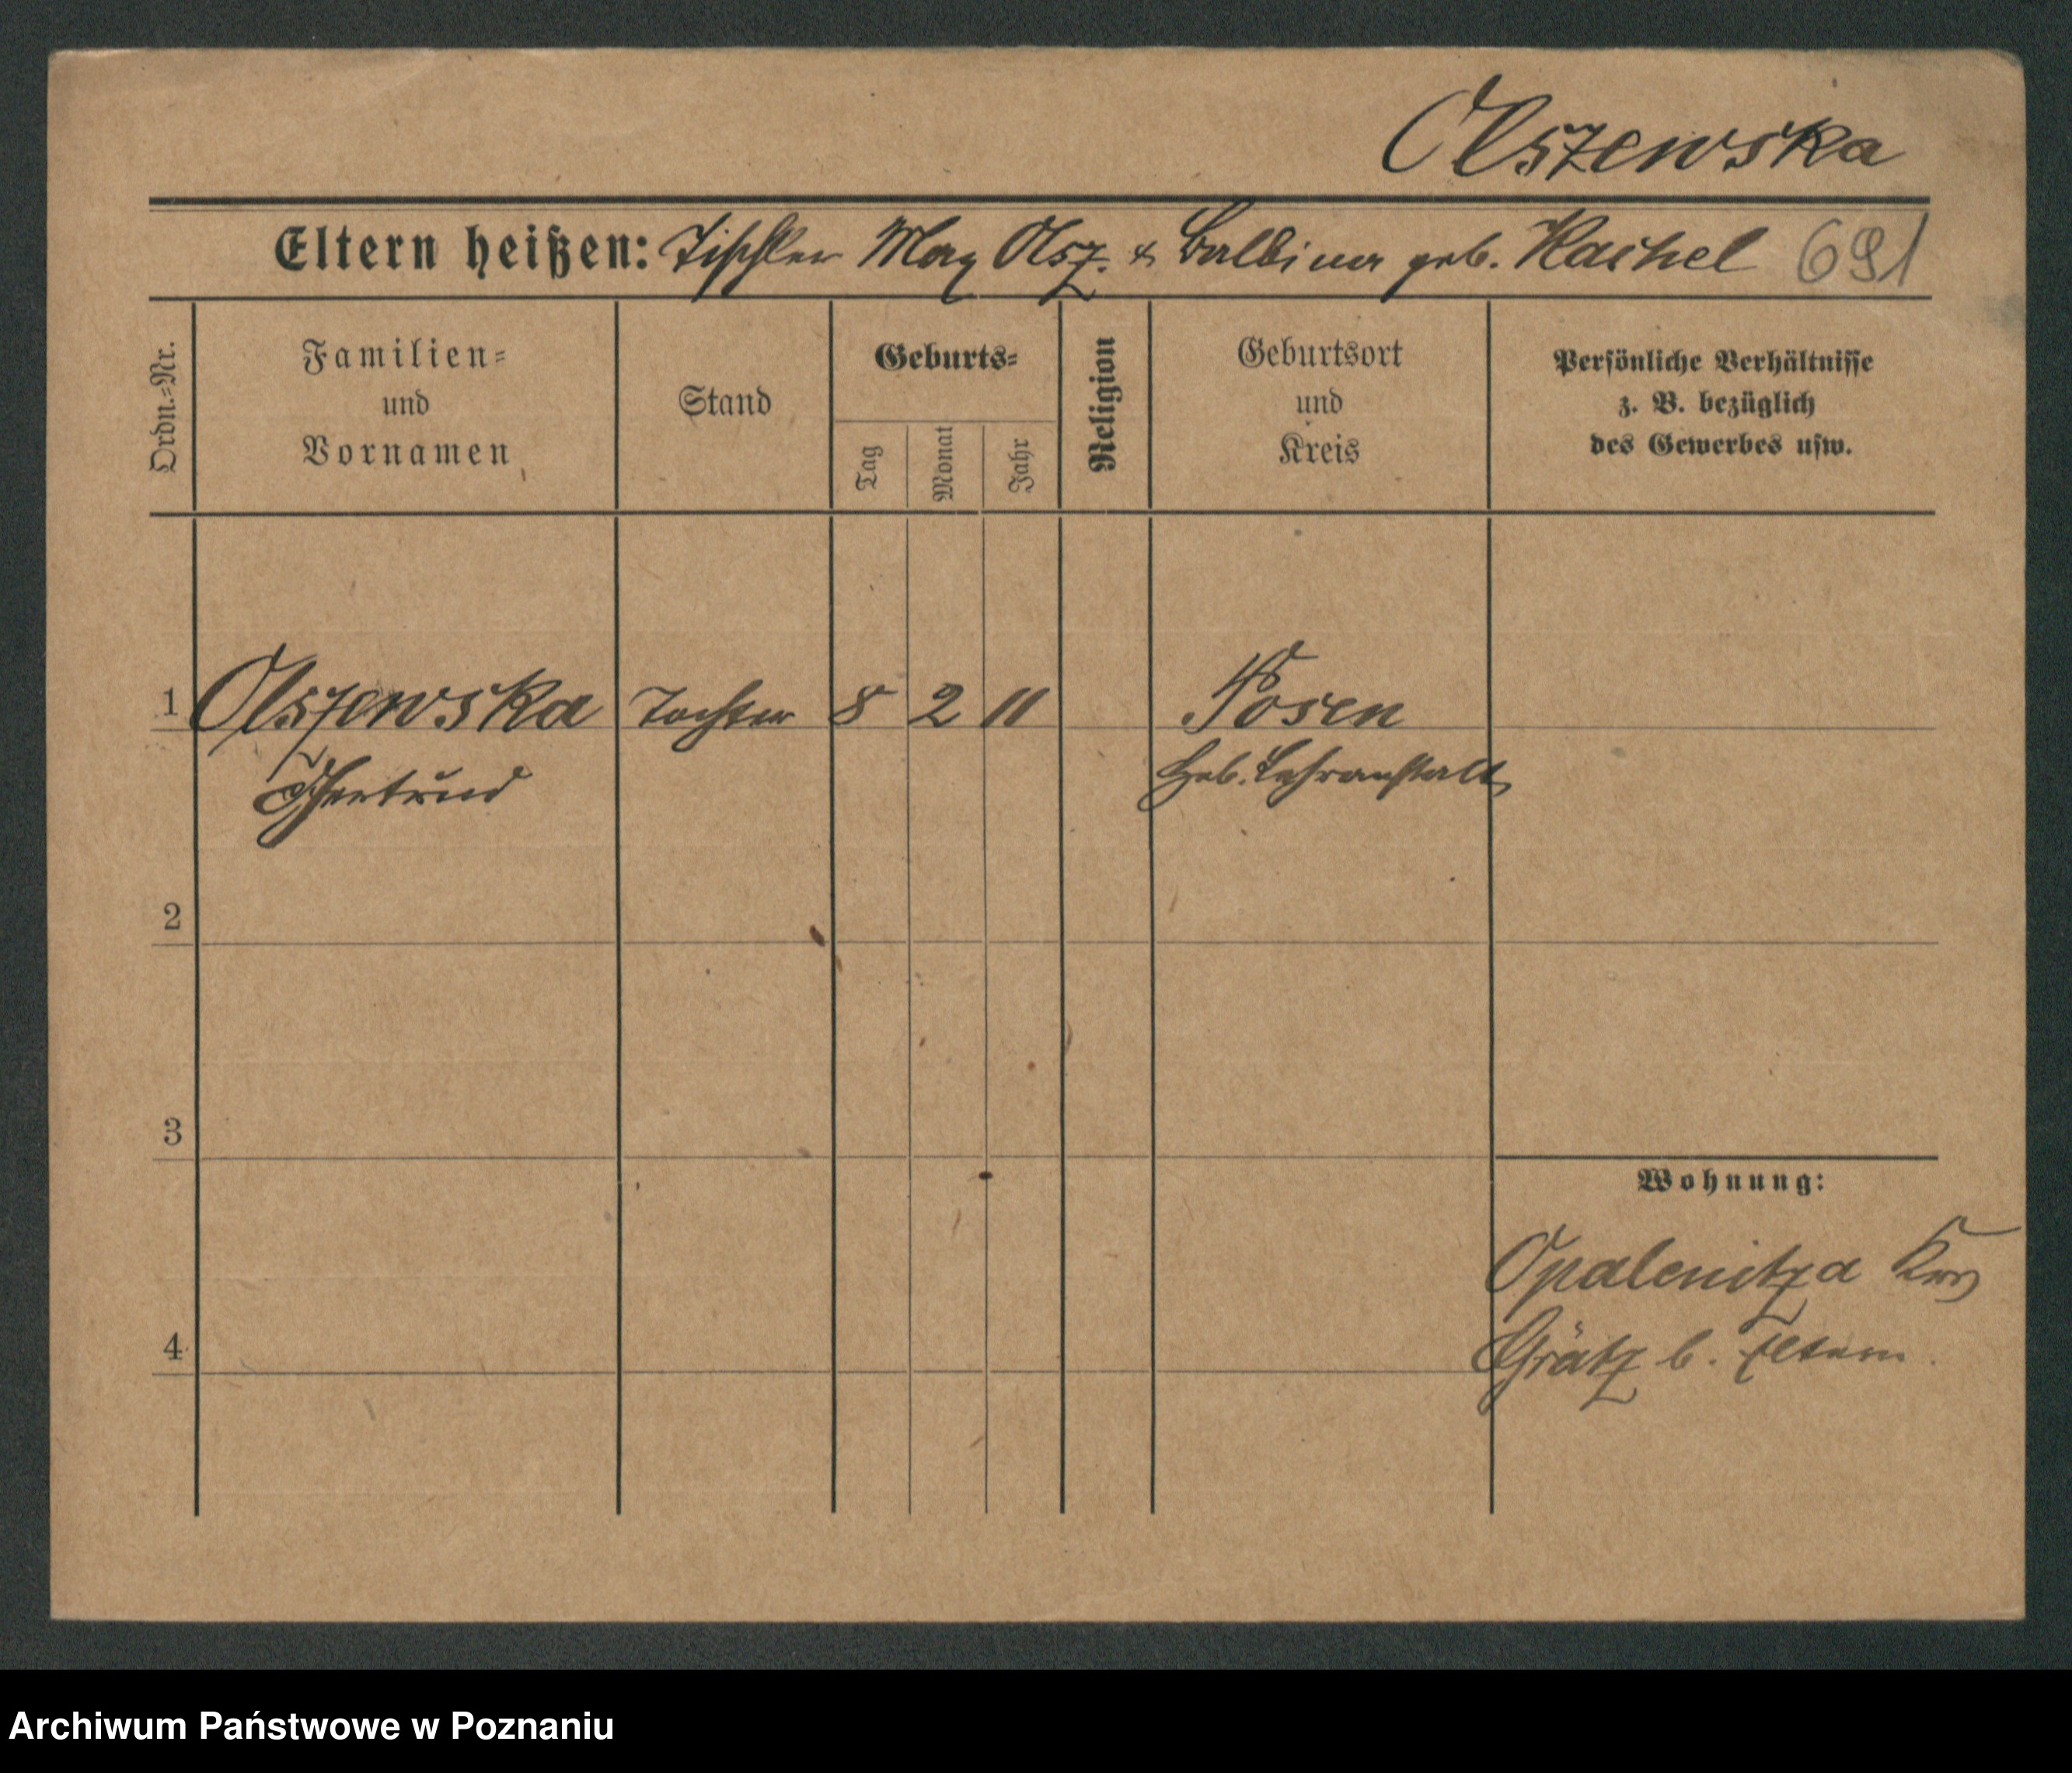 Olszewska
Eltern heißen: Tischler Max Olsz. & Balbina geb. Kaichel 691
Ordn.=Nr.
Familien=
und
Vornamen
Stand
Geburts=
Tag
Monat
Jahr
Religion
Geburtsort
und
Kreis
Persönliche Verhältnisse
z. B. bezüglich
des Gewerbes usw.
1 Olszewska Tochter 8 2 11 Posen
Gertrud Heb. Lehranstalt
2
3
Wohnung:
Opalenitza Krs
4 Grätz b. Eltern.
Archiwum Państwowe w Poznaniu